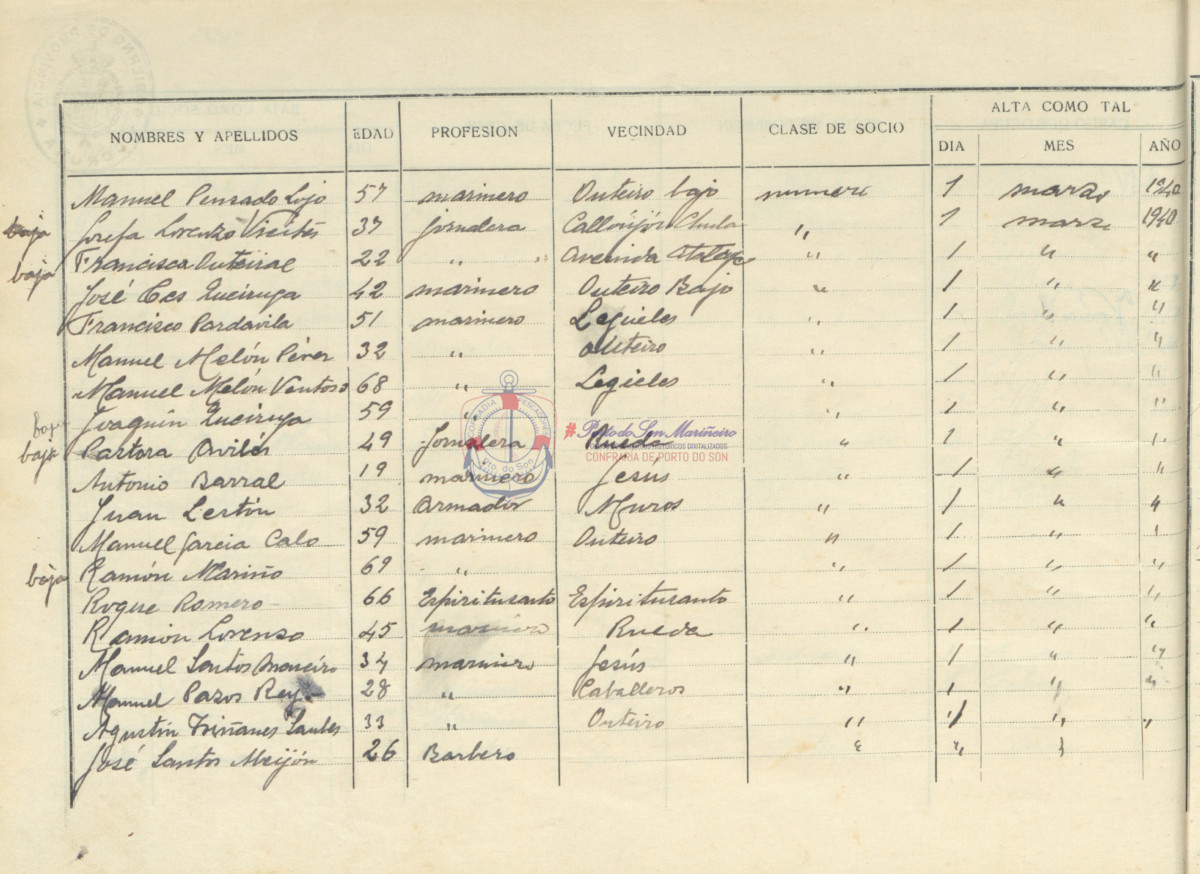 ALTA COMO TAL
NOMBRES Y APELLIDOS EDAD PROFESION VECINDAD CLASE DE SOCIO DIA MES AÑO
Manuel Pensado Lojo 57 marinero Outeiro bajo numero 1 marzo 1940
baja Josefa Lorenzo Vicites 37 jornalera Callonjos 〃 1 marzo 1940
baja Francisca Outeiral 22 〃 〃 Avenida 〃 1 〃 〃
José Ces Queiruga 42 marinero Outeiro Bajo 〃 1 〃 〃
Francisco Pardavila 51 marinero Legieles 〃 1 〃 〃
Manuel Melón Pérez 32 〃 Outeiro 〃 1 〃 〃
Manuel Melón Ventoso 68 〃 Legieles 〃 1 〃 〃
baja Joaquín Queiruga 59 〃 〃 1 〃 〃
baja Pastora Avilés 49 Jornalera Rueda 〃 1 〃 〃
Antonio Barral 19 marinero Jesús 〃 1 〃 〃
Juan Lestón 32 Armador Muros 〃 1 〃 〃
Manuel Garcia Calo 59 marinero Outeiro 〃 1 〃 〃
baja Ramón Mariño 69 〃 〃 1 〃 〃
Roque Romero 66 Espiritusanto Espiritusanto 〃 1 〃 〃
Ramón Lorenzo 45 marinero Rueda 〃 1 〃 〃
Manuel Santos Maneiro 34 marinero Jesús 〃 1 〃 〃
Manuel Pazos Rey 28 〃 Caballeros 〃 1 〃 〃
Agustín Triñanes Santos 33 〃 Outeiro 〃 1 〃 〃
José Santos Meijón 26 Barbero 〃 〃 〃
COFRADIA PESCADORES
Pto. do Son
#Porto do Son Mariñeiro
HISTÓRICOS DIGITALIZADOS
CONFRARÍA DE PORTO DO SON